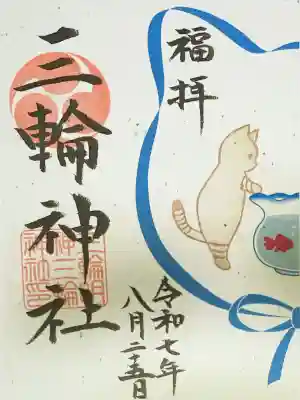 福拝
三輪神社
令和七年
八月二十五日